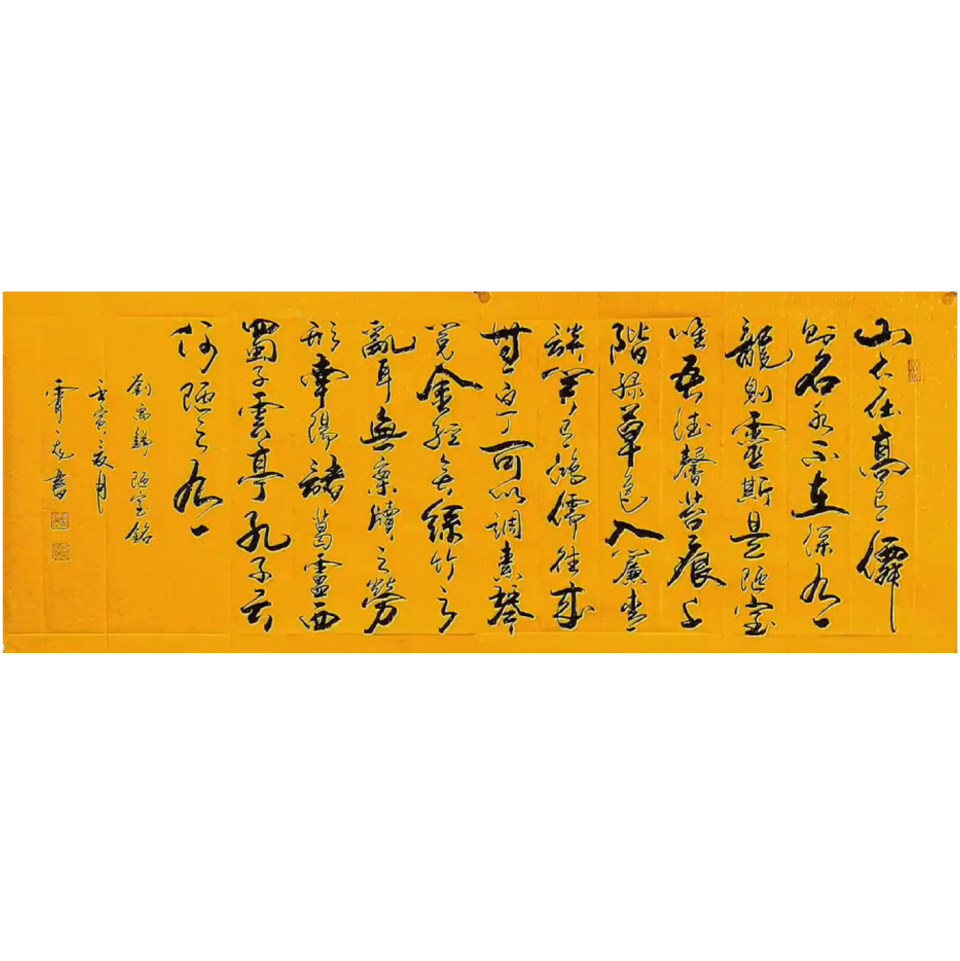 山不在高有僊
則名水不在深有
龍則靈斯是陋室
唯吾德馨苔痕上
階綠草色入簾青
談笑有鴻儒往来
無白丁可以調素琴
閱金經無絲竹之
亂耳無案牘之勞
形南陽諸葛廬西
蜀子雲亭孔子云
何陋之有
劉禹錫陋室銘
壬寅夏月
書